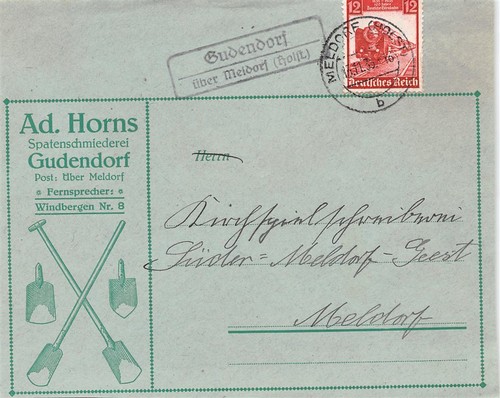 Gudendorf
über Meldorf (Holst.)
MELDORF (HOLST)
b
12 12
Deutsches Reich
Ad. Horns
Spatenschmiederei
Gudendorf
Post: Über Meldorf
* Fernsprecher: *
Windbergen Nr. 8
Herrn
Kirchspielschreiberei
Süder=Meldorf=Geest
Meldorf